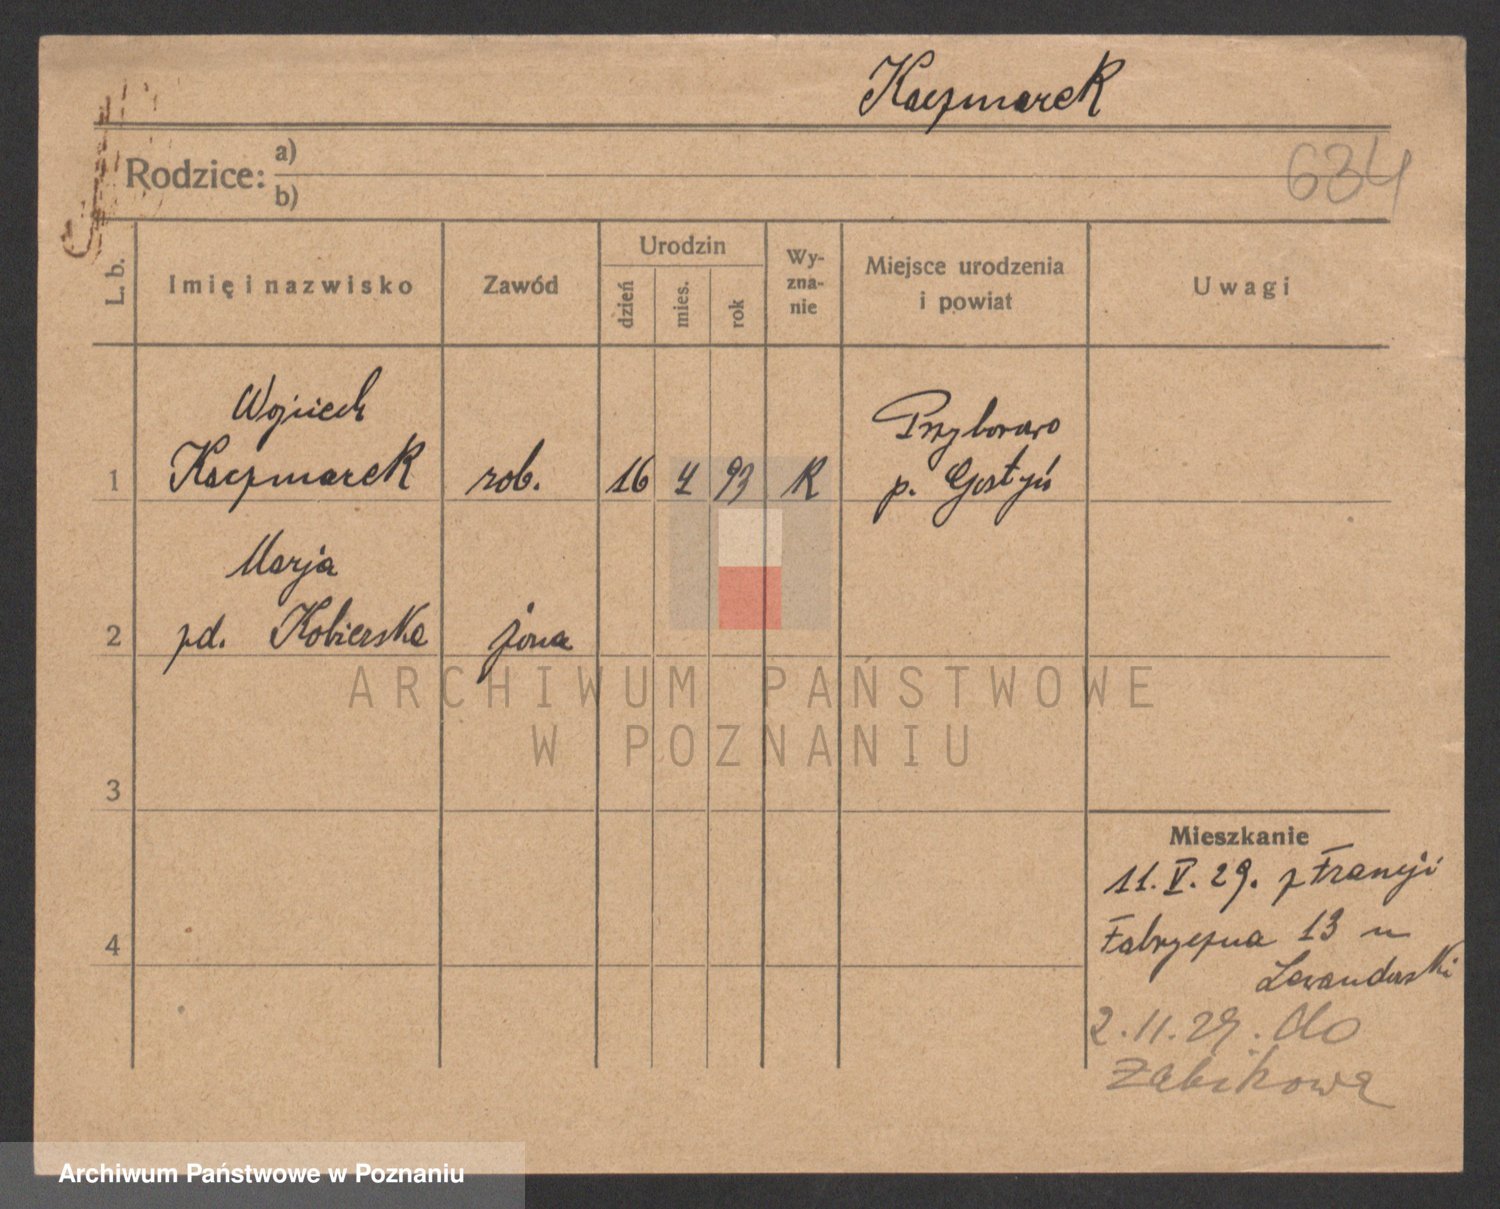 Kaczmarek
634
Rodzice: a)
b)
L. b.
Imię i nazwisko
Zawód
Urodzin
dzień
mies.
rok
Wy-
zna-
nie
Miejsce urodzenia
i powiat
Uwagi
Wojciech
1 Kaczmarek rob. 16 4 93 R
Przyborowo
p. Gostyń
Marja
2 zd. Kobierska żona
ARCHIWUM PAŃSTWOWE
W POZNANIU
3
Mieszkanie
11. V. 29. z Francji
Fabryczna 13 u
Lewandowski
4
2. 11. 29. do
Żabikowa
Archiwum Państwowe w Poznaniu